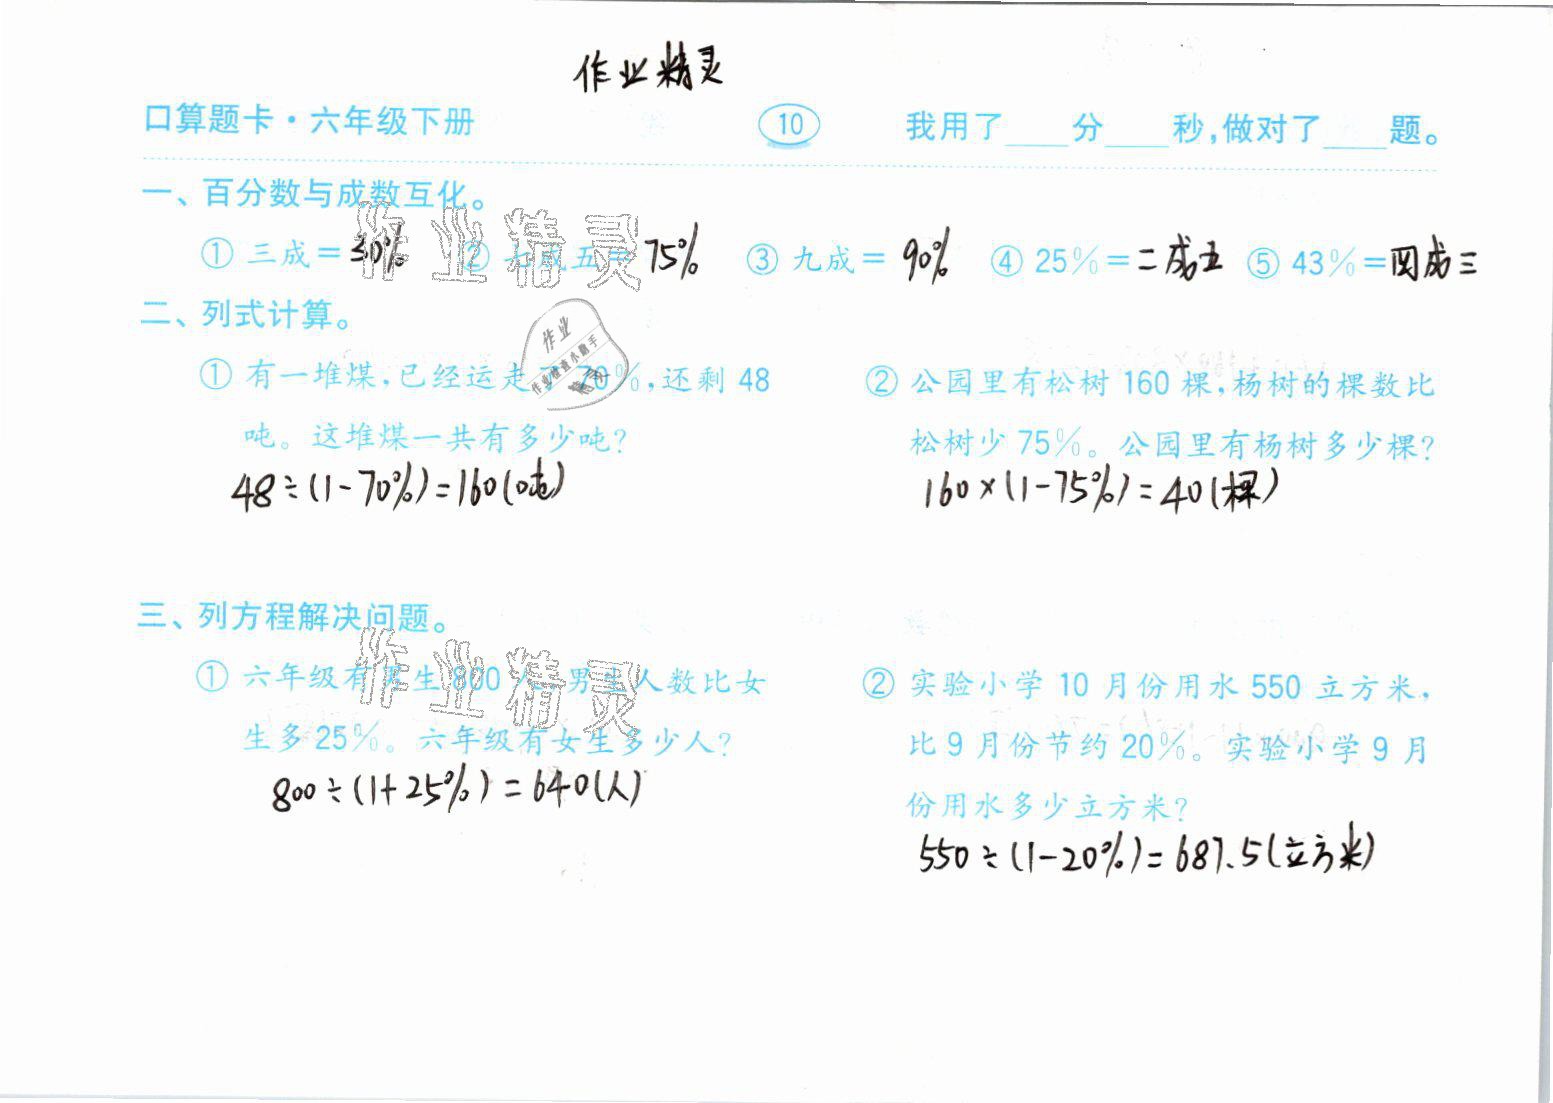 作业精灵
口算题卡·六年级下册 10 我用了____分____秒,做对了____题。
一、百分数与成数互化。
① 三成=30% ② 七成五=75% ③ 九成=90% ④ 25%=二成五 ⑤ 43%=四成三
作业精灵
二、列式计算。
① 有一堆煤,已经运走了70%,还剩48
吨。这堆煤一共有多少吨?
48÷(1-70%)=160(吨)
作业
作业检查小助手
② 公园里有松树160棵,杨树的棵数比
松树少75%。公园里有杨树多少棵?
160×(1-75%)=40(棵)
三、列方程解决问题。
作业精灵
① 六年级有男生800人,男生人数比女
生多25%。六年级有女生多少人?
800÷(1+25%)=640(人)
② 实验小学10月份用水550立方米,
比9月份节约20%。实验小学9月
份用水多少立方米?
550÷(1-20%)=687.5(立方米)